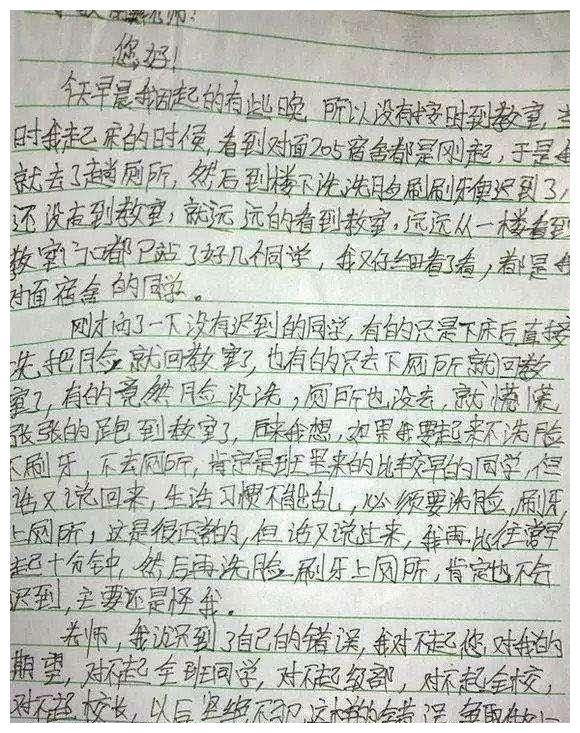 老师:
您好!
今天早晨我因起的有些晚,所以没有按时到教室,当
时我起床的时候,看到对面205宿舍都是刚起,于是我
就去了趟厕所,然后到楼下洗洗脸刷刷牙便迟到了,
还没走到教室,就远远的看到教室,远远从一楼看到
教室门口都已站了好几个同学,我又仔细看了看,都是我
对面宿舍的同学。
刚才问了一下没有迟到的同学,有的只是下床后直接
洗把脸就回教室了,也有的只去下厕所就回教
室了,有的竟然脸没洗,厕所也没去,就慌慌
张张的跑到教室了,后来我想,如果我要起来不洗脸
不刷牙,不去厕所,肯定是到班里来的比较早的同学,但
话又说回来,生活习惯不能乱,必须要洗脸,刷牙,
上厕所,这是很正常的,但话又说过来,我再比往常早
起十分钟,然后再洗脸刷牙上厕所,肯定也不会
迟到,主要还是怪我。
老师,我认识到了自己的错误,我对不起您对我的
期望,对不起全班同学,对不起级部,对不起全校,
对不起校长,以后坚决不犯这样的错误,争取做